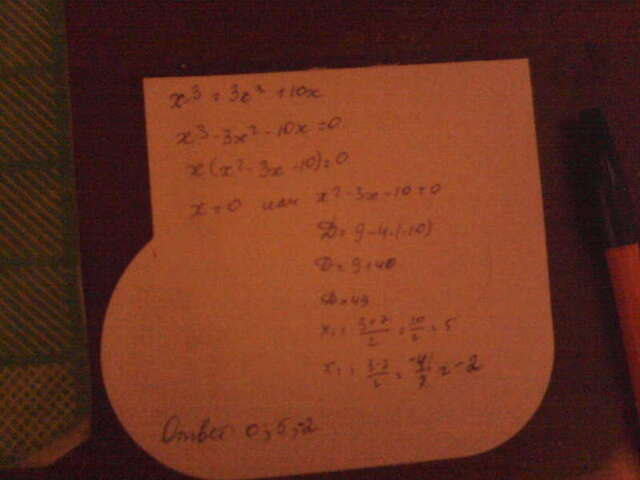 x³ = 3x² + 10x
x³ - 3x² - 10x = 0
x(x² - 3x - 10) = 0
x = 0 или x² - 3x - 10 = 0
D = 9 - 4·(-10)
D = 9 + 40
D = 49
x₁ = (3+7)/2 = 10/2 = 5
x₁ = (3-7)/2 = -4/2 = -2
Ответ 0; 5; -2